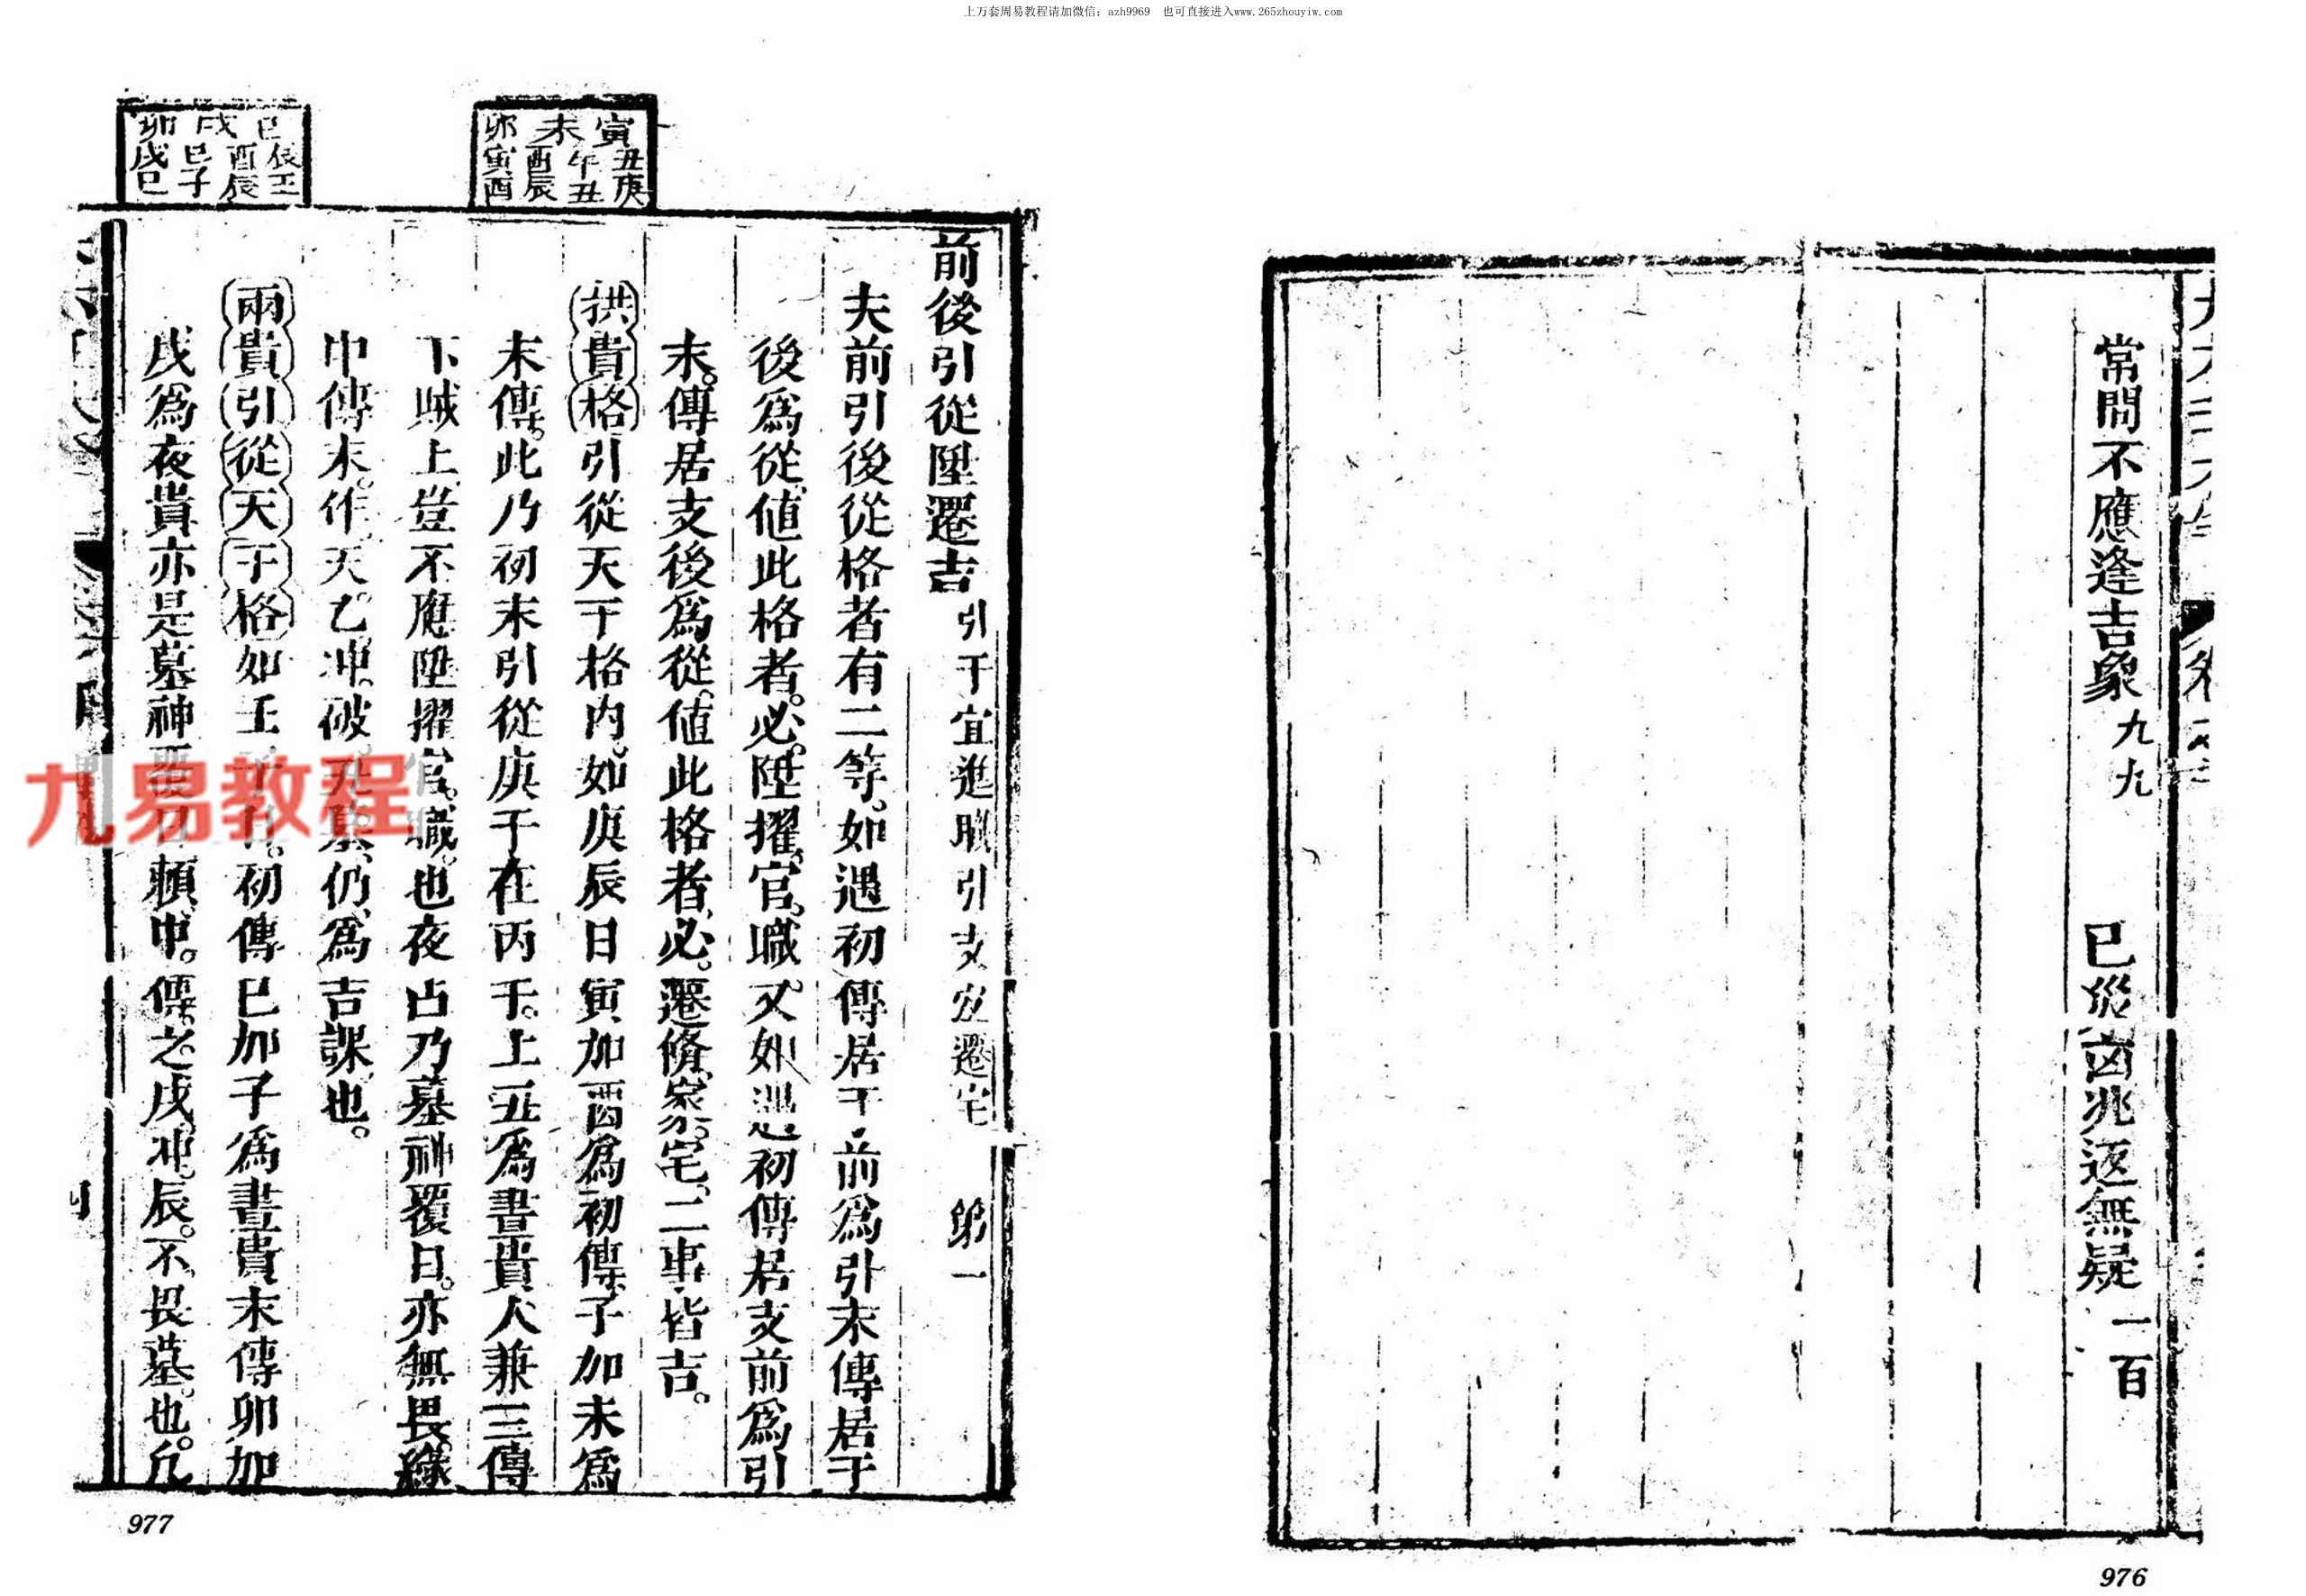 上万套周易教程请加微信：azh9969　也可直接进入www.265zhouyiw.com
常問不應逢吉象 九九　已災凶兆返無疑 一百
976
寅丑庚
未午丑
酉辰
卯寅酉
巳辰壬
酉辰
戌巳子
卯戌巳
前後引從陞遷吉 引干宜進職引支宜遷宅 第一
夫前引後從格者有二等。如遇初傳居干前爲引末傳居干
後爲從。値此格者。必陞擢官職。又如遇初傳居支前爲引
末傳居支後爲從。値此格者必遷脩家宅。二事皆吉。
拱貴格引從天干格内。如庚辰日寅加酉爲初傳子加未爲
末傳。此乃初末引從庚干在丙干上丑爲晝貴人兼三傳
下賊上豈不應陞擢官職也夜占乃墓神覆日。亦無畏緣
中傳未作天乙冲破丑墓仍爲吉課也。
兩貴引從天干格如壬子日。初傳巳加子爲晝貴末傳卯加
戌爲夜貴亦是墓神覆日賴中傳之戌冲辰。不畏墓也。凡
九易教程
977